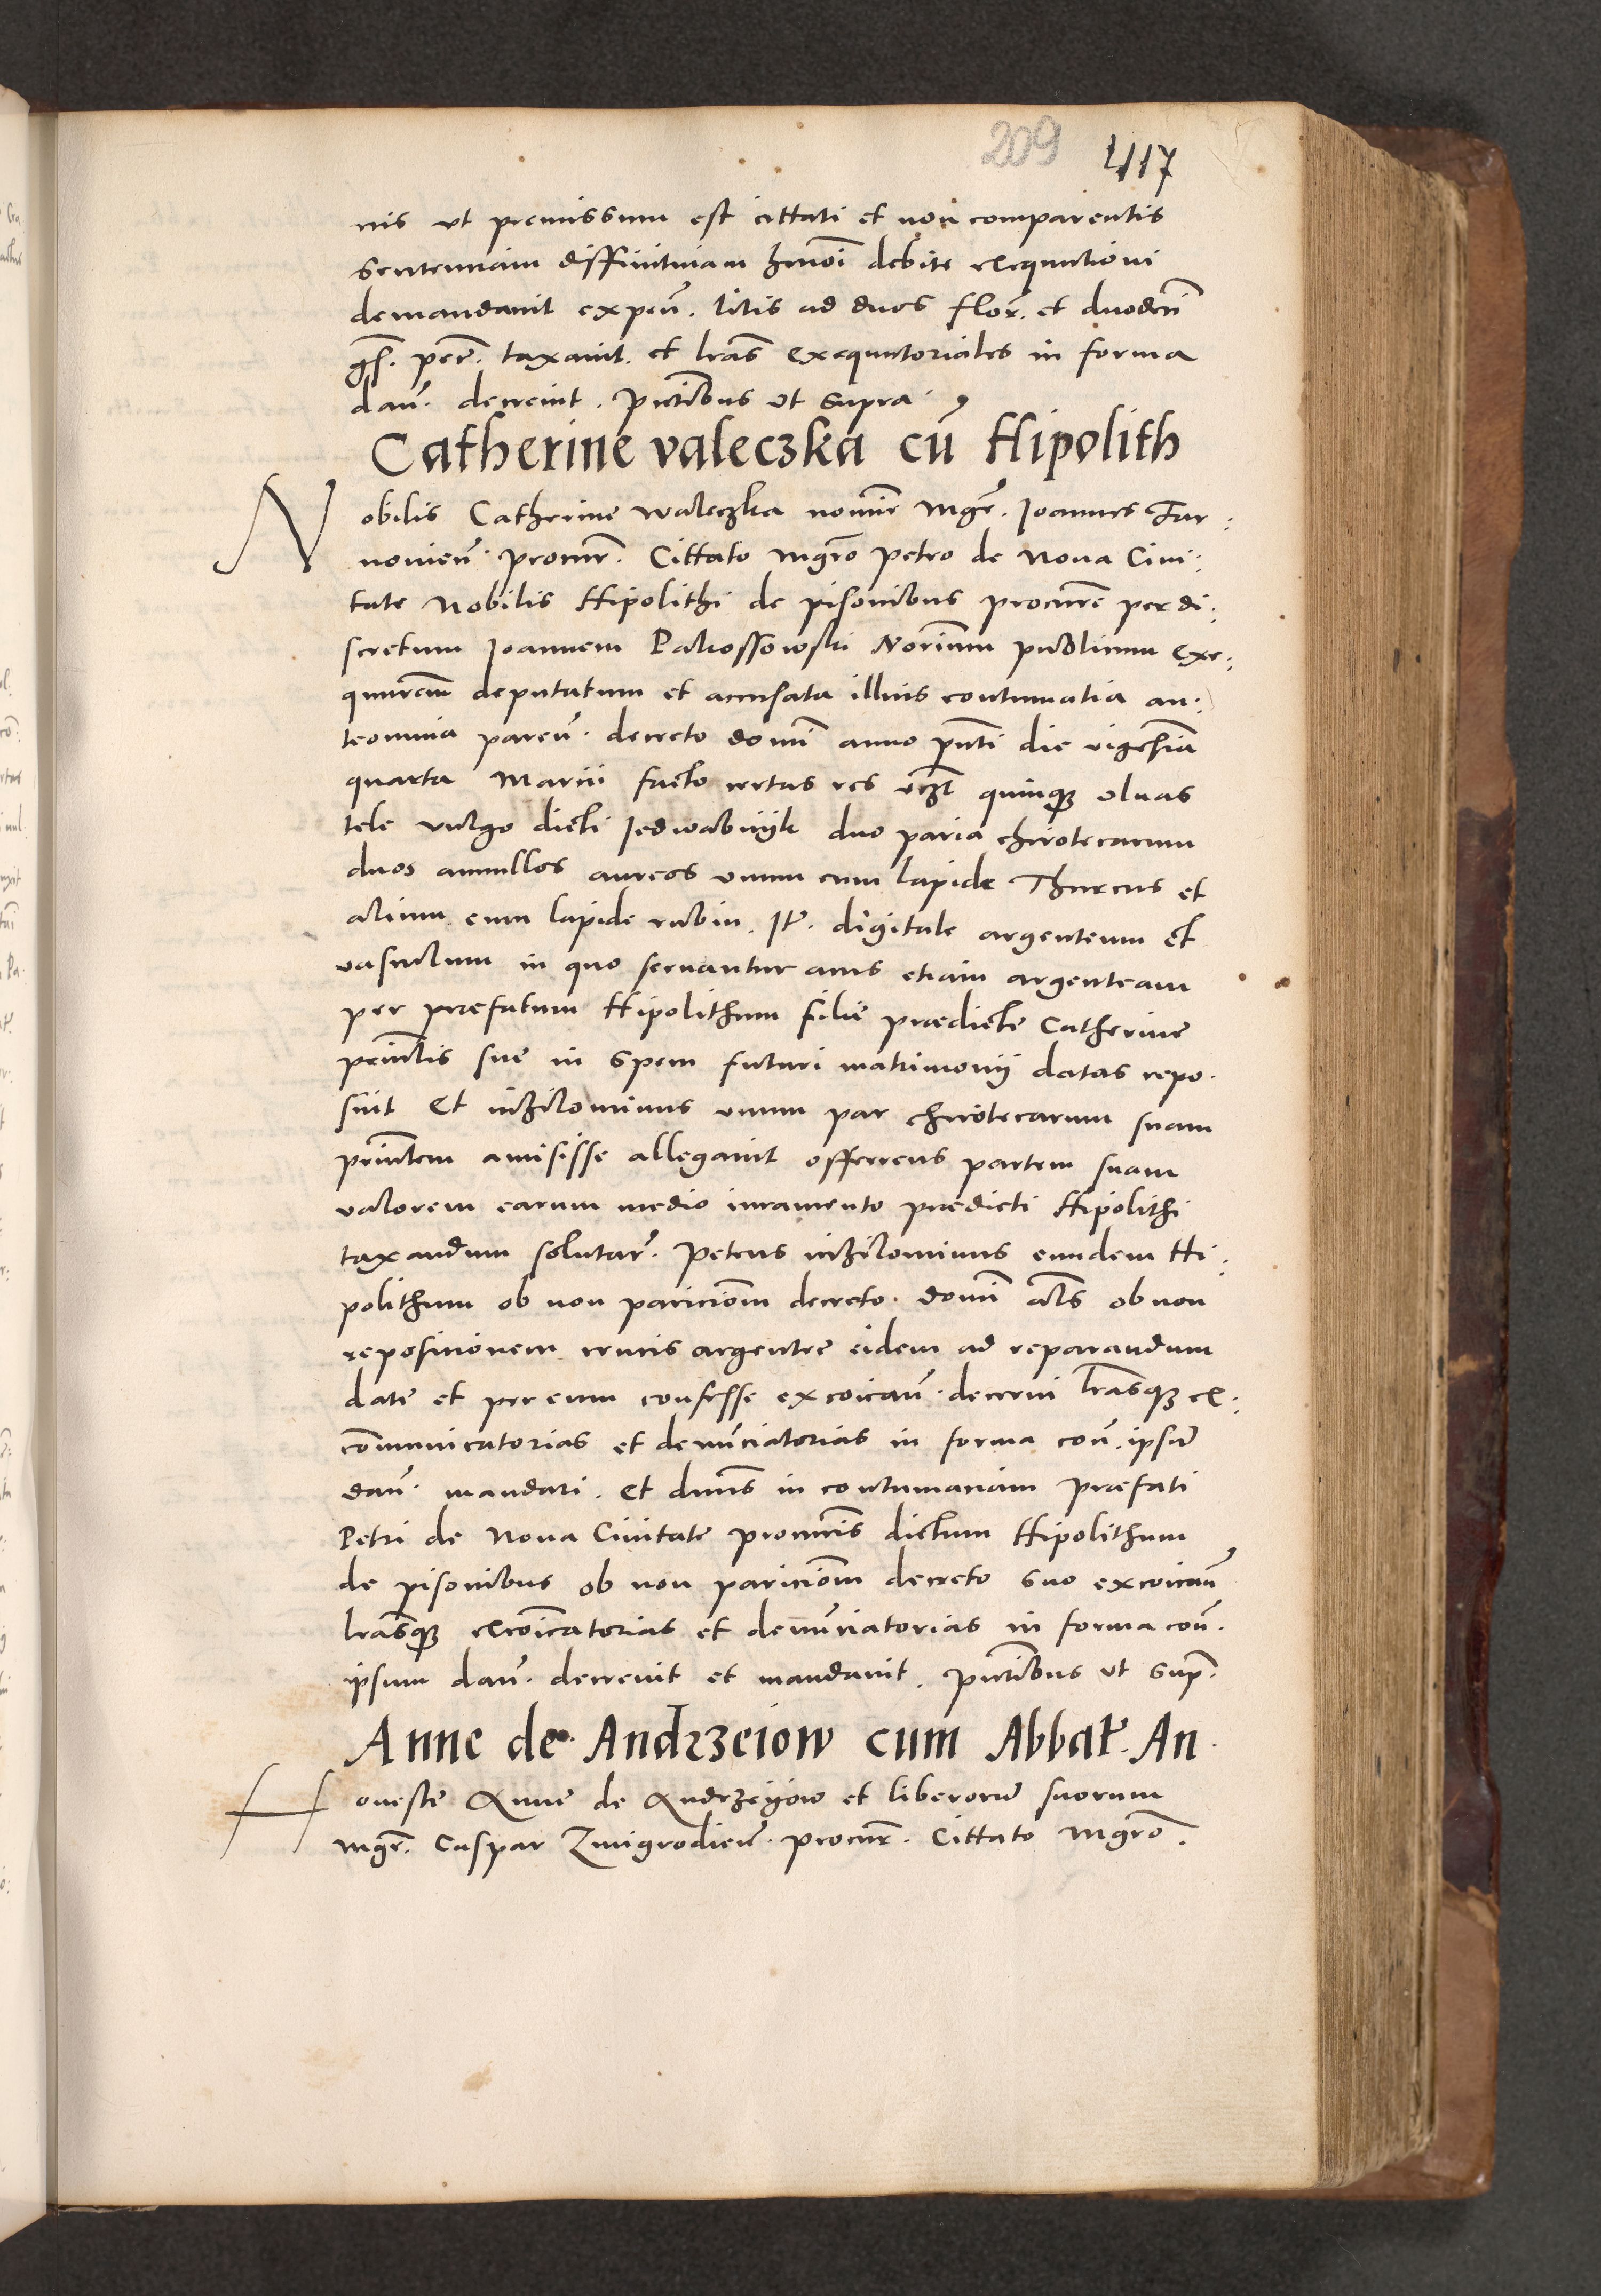 209 417
nis ut premissum est cittati et non comparentis
sententiam diffinitivam hmōi debite exequutioni
demandavit expeñ. litis ad duos flor̃. et duodecī
gs̃. per̃. taxavit. et lrãs exequutoriales in forma
dañ. decrevit. Pñtibus ut supra
Catherine valeczka cū Hipolith
Nobilis Catherine waleczka nomine Mgr̃. Joannes Tar:
novieñ. procur̃. Cittato Mgrõ Petro de Nova Civi:
tate Nobilis Hipolithi de pisonibus procur̃e per di:
scretum Joannem Pakossowski Notr̃ium publicum exe:
quutorem deputatum et accusata illius contumatia an:
teomnia pareñ. decreto domī anno pñti die vigesīa
quarta Marcii facto certas res vcz̃t quinq̨ ulnas
tele vulgo dicti Jedwabnijk duo paria chirotecarum
duos annullos aureos unum cum lapide Thurcus et
alium cum lapide rubin. Jt̃. digitale argenteum et
vasculum in quo servantur acus etiam argenteam
per præfatum Hipolithum filie prædicte Catherine
prñcilis sue in spem futuri matrimonij datas repo.
suit Et nihilominus unum par chirotecarum suam
prñcilem amisisse allegavit offerrens partem suam
valorem earum medio iuramento prædicti Hipolithi
taxandum solutar̃. Petens nihilominus eundem Hi:
polithum ob non paricioñm decreto. domī aĩs ob non
reposicionem crucis argentee eidem ad reparandum
date et per eum confesse excoicañ. decerni lrãsq̨ ex:
cõmunicatorias et denũciatorias in forma coñ. ipsũ
dañ. mandari. Et dñus in contumaciam præfati
Petri de Nova Civitate procur̃is dictum Hipolithum
de pisonibus ob non paricioñm decreto suo excoicañ
lrãsq̨ excoĩcatorias et denũciatorias in forma coñ.
ipsum dañ. decrevit et mandavit. Pñtibus ut sup̃.
Anne de Andrzeiow cum Abbat̃. An.
Honeste Anne de Andrzeyow et liberorũ suorum
Mgr̃. Caspar Zmigrodieñ. procur̃. Cittato Mgrõ.